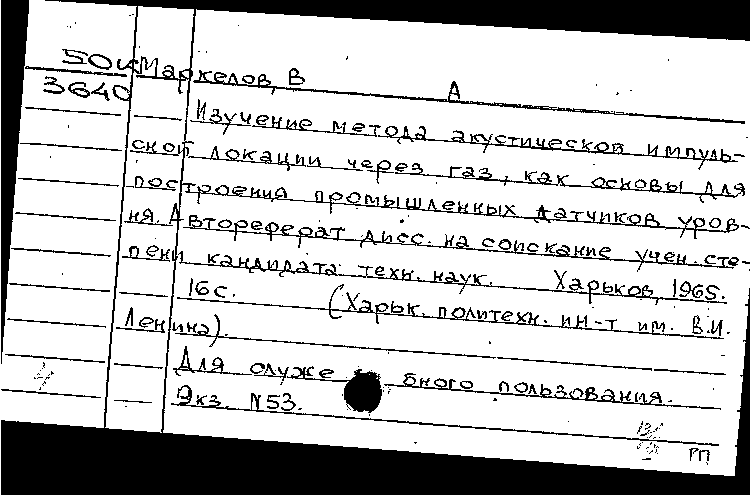 50к Маркелов, В
3640 А
Изучение метода акустической импуль-
сной локации через газ, как основы для
построения промышленных датчиков уров-
ня. Автореферат дисс. на соискание учен. сте-
пени кандидата техн. наук. Харьков, 1965.
16с. (Харьк. политехн. ин-т им. В.И.
Ленина).
Для служе бного пользования.
Экз. №53.
РП